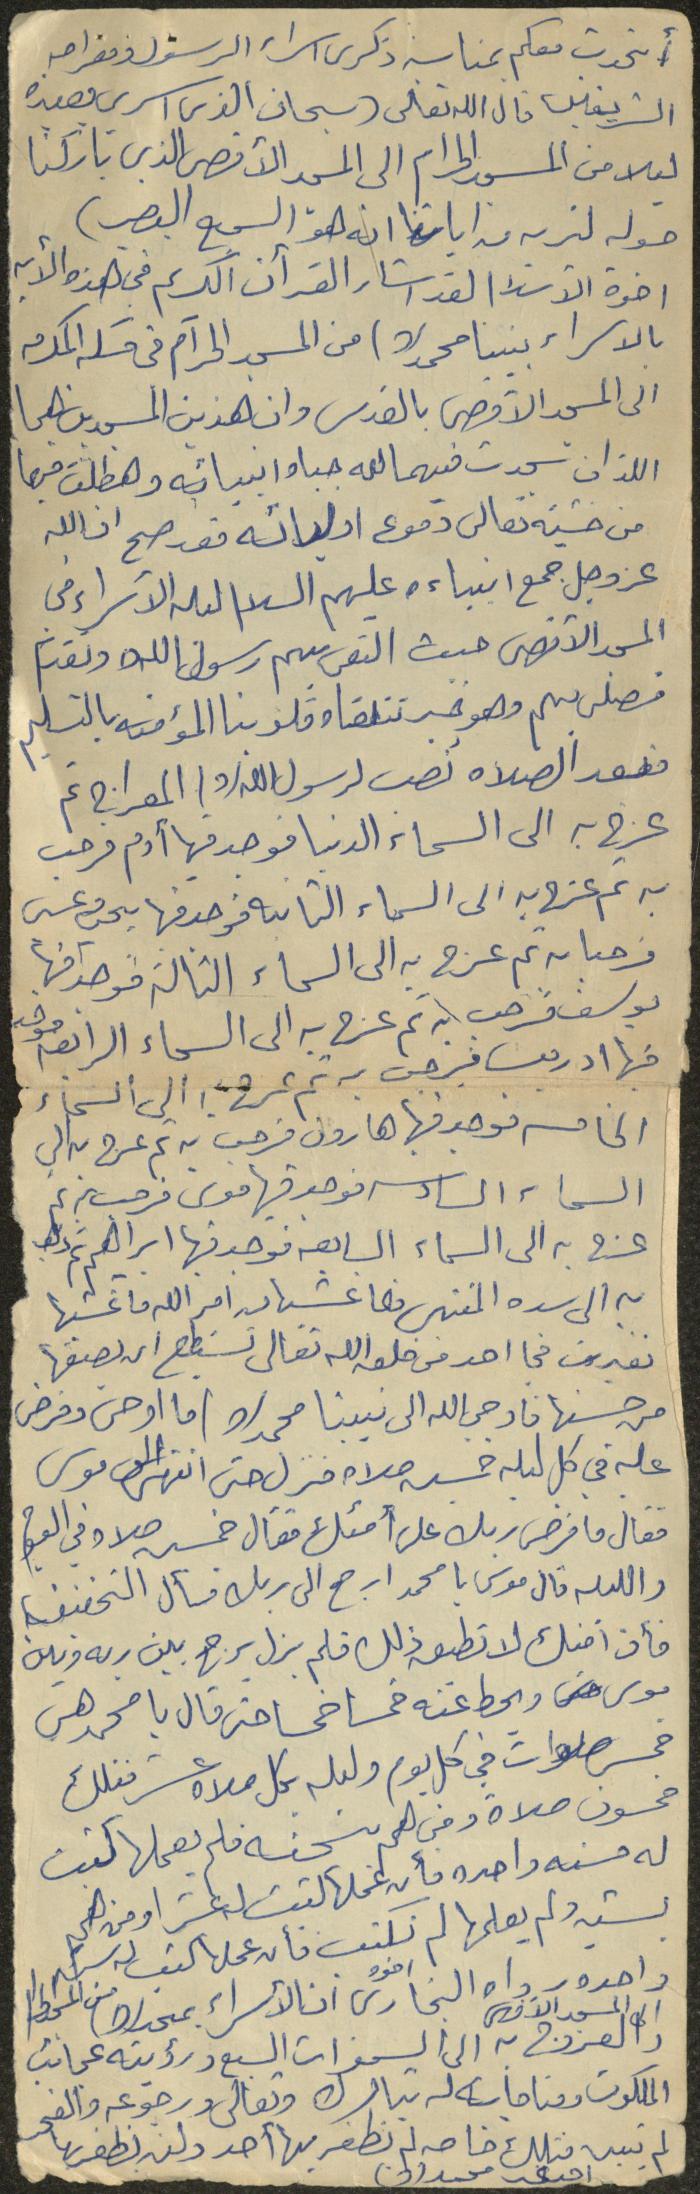 أتحدث معكم بمناسبة ذكرى اسراء الرسول ومعراجه
الشريفين قال الله تعالى (سبحان الذي اسرى بعبده
ليلا من المسجد الحرام الى المسجد الأقصى الذي باركنا
حوله لنريه من اياتنا انه هو السميع البصير)
اخوة الاسلام لقد اشار القرآن الكريم في هذه الأيه
بالاسراء بنبينا محمد (ص) من المسجد الحرام في مكه المكرمه
الى المسجد الأقصى بالقدس وان هذين المسجدين هما
اللذان سجدت فيهما لله جباه انبيائه وهطلت فيها
من خشيته تعالى دموع اوليائه فقد صح ان الله
عز وجل جمع انبياءه عليهم السلام ليله الأسراء في
المسجد الأقصى حيث التقى بهم رسول الله وتقدم
فصلى بهم وهو خبر تتلقاه قلوبنا المؤمنه بالتسليم
فبعد الصلاه نصب لرسول الله (ص) المعراج ثم
عرج به الى السماء الدنيا فوجد فيها أدم فرحب
به ثم عرج به الى السماء الثانيه فوجد فيها يحى وعيسى
فرحبا به ثم عرج به الى السماء الثالثة فوجد فيها
يوسف فرحب به ثم عرج به الى السماء الرابعه فوجد
فيها ادريس فرحب به ثم عرج به الى السماء
الخامسه فوجد فيها هارون فرحب به ثم عرج به الى
السماء السادسه فوجد فيها موسى فرحب به ثم
عرج به الى السماء السابعه فوجد فيها ابراهيم ثم ذهب
به الى سدره المنتهى فلما غشيها من امر الله ما غشيها
تغيرت فما احد من خلق الله تعالى يستطيع ان يصفها
من حسنها فأوحى الله الى نبينا محمد (ص) ما اوحى وفرض
عليه في كل ليله خمسين صلاه فنزل حتى انتهى الى موسى
فقال ما فرض ربك على أمتك فقال خمسين صلاه في اليوم
والليله قال موسى يا محمد ارجع الى ربك فسأل التخفيف
فأن امتك لا تطيق ذلك فلم يزل يرجع بين ربه وبين
موسى ويحط عنه خمسا خمسا حتى قال يا محمد هي
خمس صلوات في كل يوم وليله بكل صلاه عشر فتلك
خمسون صلاة ومن هم بحسنه فلم يعملها كتبت
له حسنه واحده فأن عملها كتبت له عشرا ومن هم
بسيئه ولم يعلمها لم تكتب فأن عملها كتبت له سيئه
واحده رواه البخاري اخوه ان الأسراء بمحمد (ص) من المسجد الحرام
الى المسجد الأقصى
والعروج به الى السموات السبع ورؤيته عجائب
الملكوت ومناجاته له تبارك وتعالى ورجوعه والفجر
لم يتبين فتلك خاصه لم تظفر بها أحد ولن يظفر بها
احد غير محمد (ص)